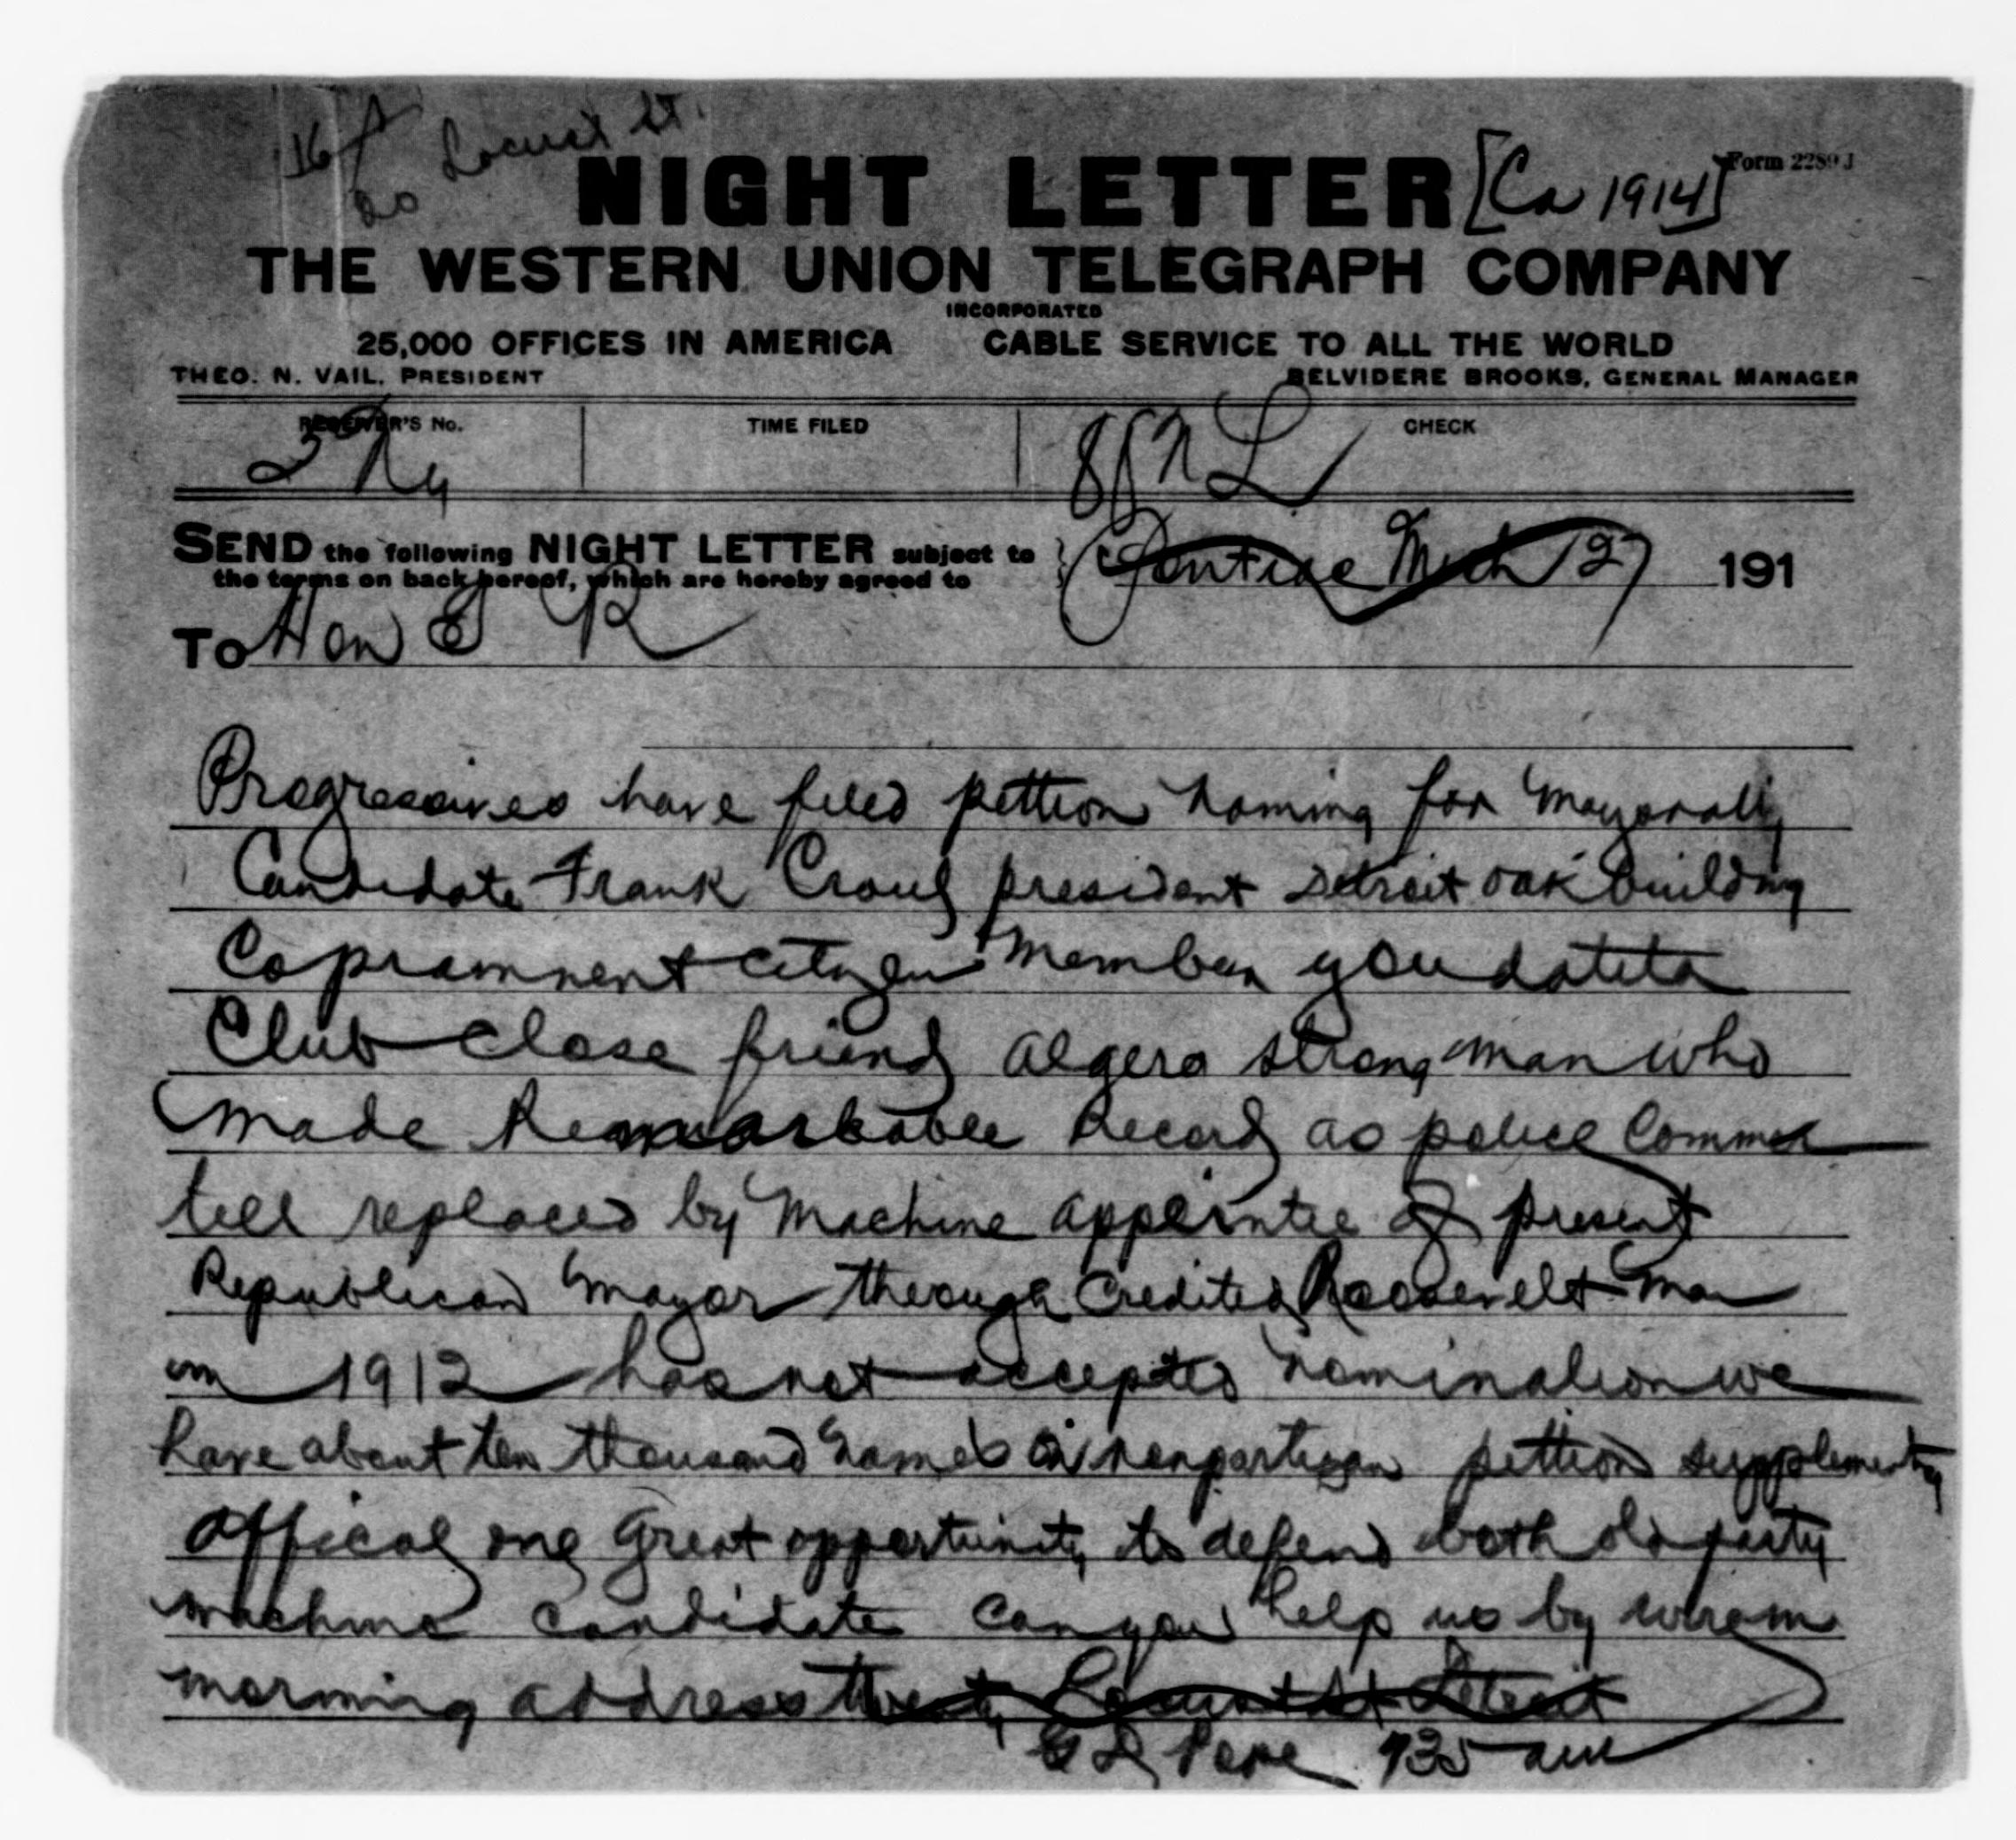 Locust St.
20
NIGHT LETTER [Ca 1914] Form 2289 J
THE WESTERN UNION TELEGRAPH COMPANY
INCORPORATED
25,000 OFFICES IN AMERICA CABLE SERVICE TO ALL THE WORLD
THEO. N. VAIL, PRESIDENT BELVIDERE BROOKS, GENERAL MANAGER
RECEIVER'S No. TIME FILED CHECK
N L
SEND the following NIGHT LETTER subject to
the terms on back hereof, which are hereby agreed to
Pontiac Mich 27 191
To Hon T R
Progressives have filed pettion naming for Mayoralty
Candidate Frank Croul president Detroit oak building
Co promnent citizen member yondotita
Club close friend Algers strong man who
made Remarkable Record as police Commr
till replaced by machine appointee of present
Republican mayor through credited Roosevelt man
in 1912 has not accepted nomination we
have about ten thousand names in nonpartizan pettion supplementing
official one great opportunity to defend both old party
machine candidate can you help us by wire in
morning address Twenty Locust St Detroit
935 am